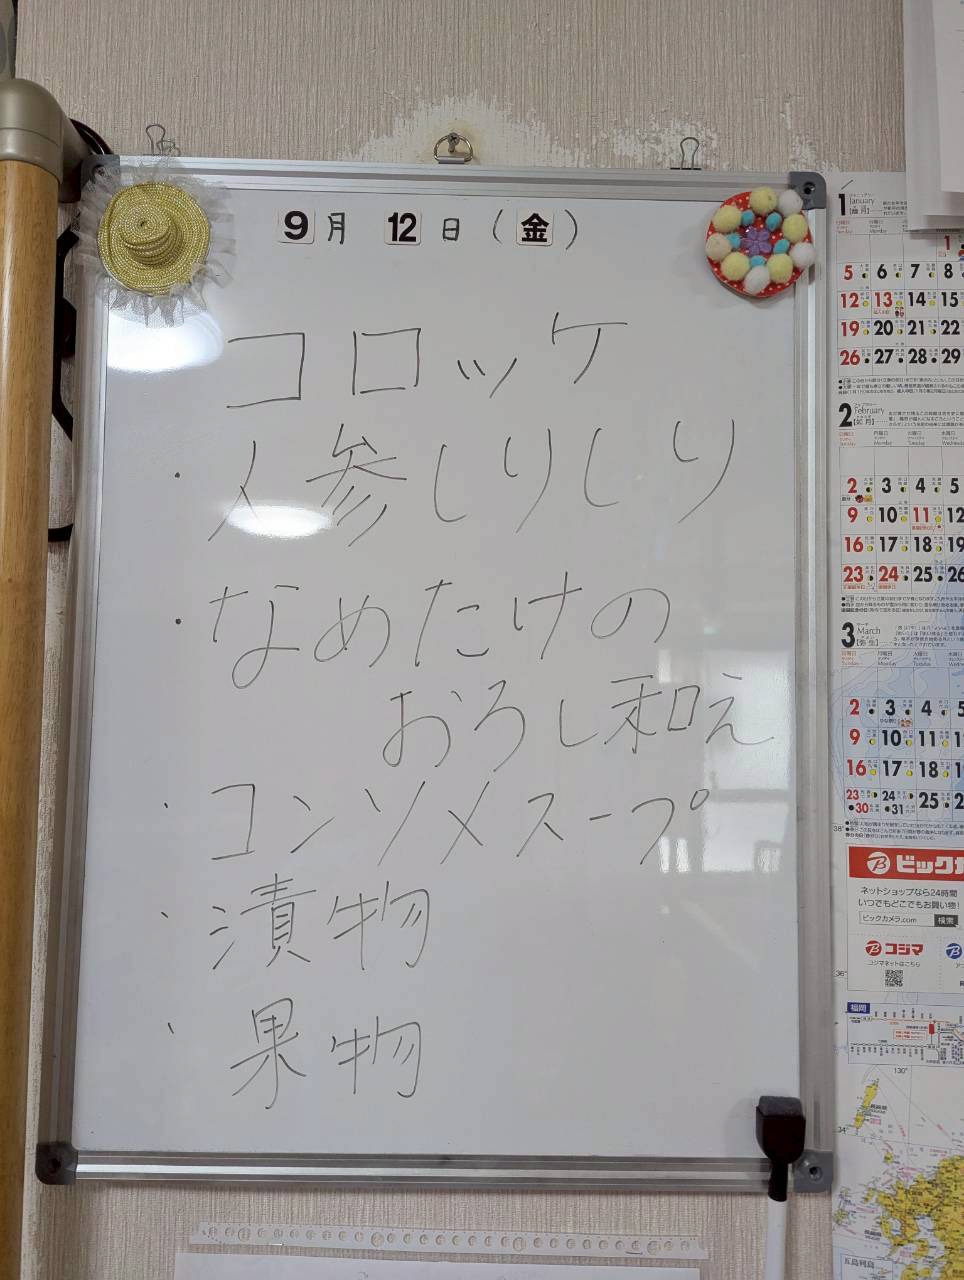 9月 12日(金)
コロッケ
・人参しりしり
・なめたけの
おろし和え
・コンソメスープ
・漬物
・果物
1
January
【睦月】
1
5 6 7 8
12 13 14 15
19 20 21 22
26 27 28 29
2
February
【如月】
2 3 4 5
9 10 11 12
16 17 18 19
23 24 25 26
3
March
【弥生】
2 3 4 5
9 10 11
16 17 18
23 24 25
30 31
ビックカ
ネットショップなら24時間
いつでもどこでもお買い物!
ビックカメラ.com 検索
コジマ
コジマネットはこちら
福岡
38°
36°
130°
34°
五島列島